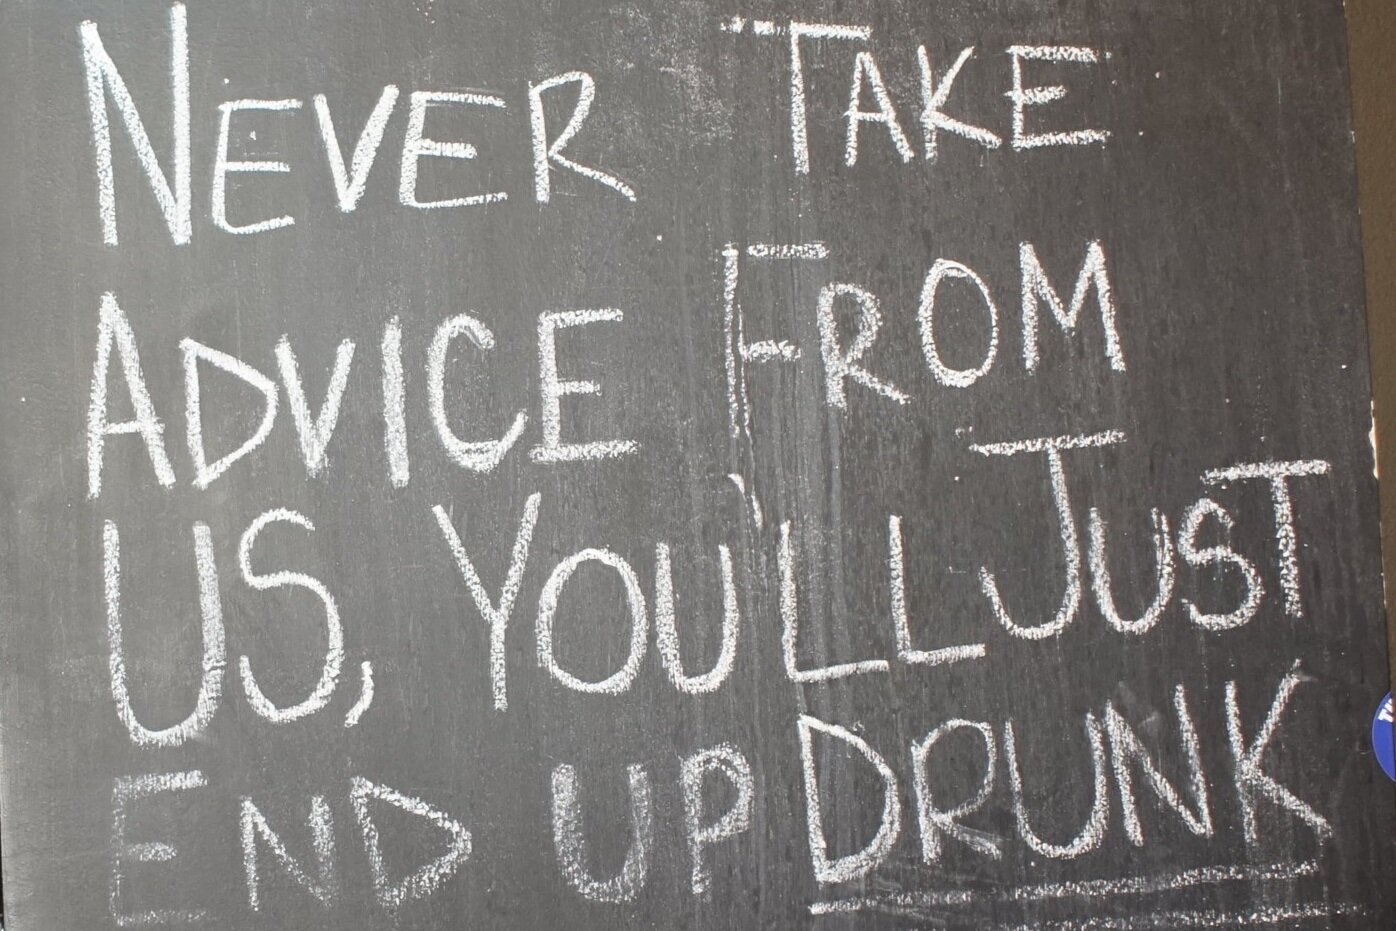 NEVER TAKE
ADVICE FROM
US, YOU'LL JUST
END UP DRUNK